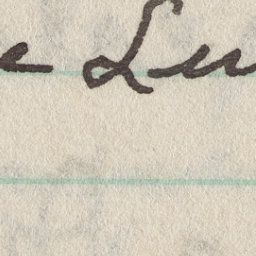 e Lu